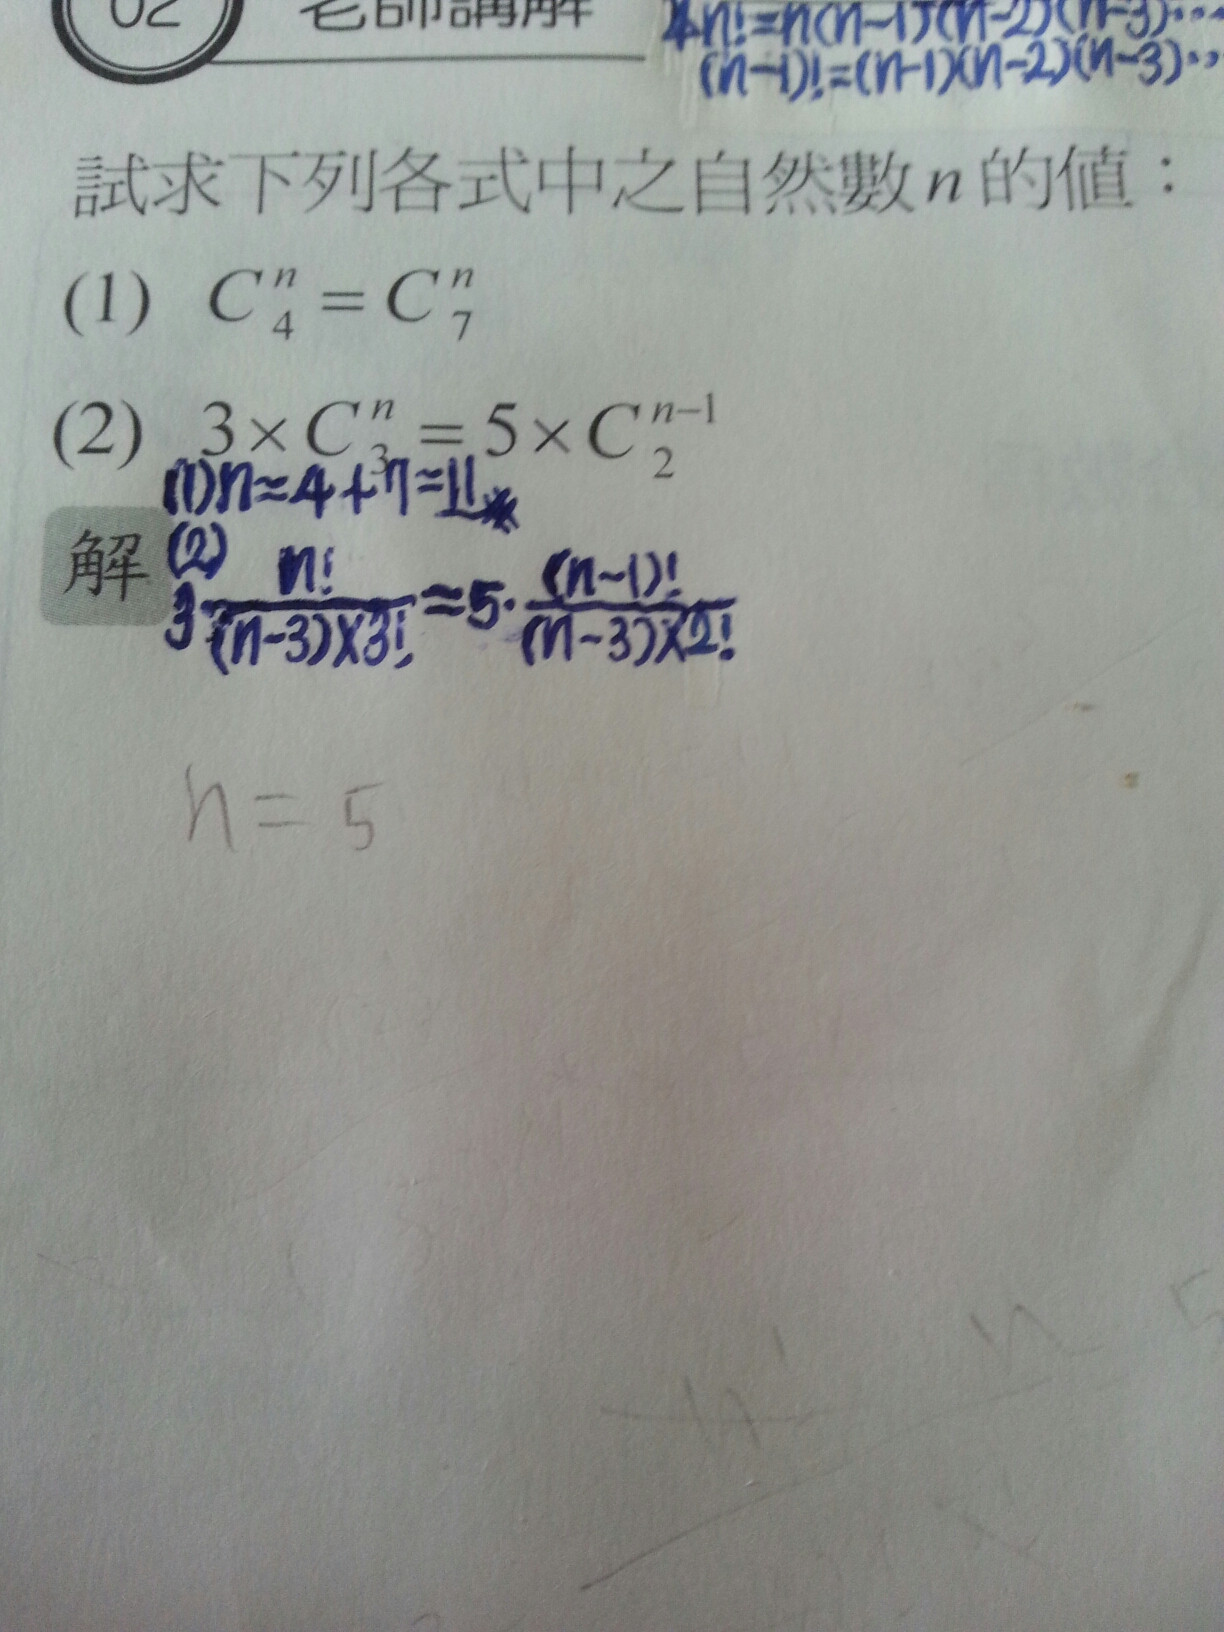 02 老師講解
n!=n(n-1)(n-2)(n-3)...
(n-1)!=(n-1)(n-2)(n-3)...
試求下列各式中之自然數n的值：
(1) C^n_4 = C^n_7
(2) 3×C^n_3 = 5×C^{n-1}_2
(1)n=4+7=11
解 (2)
3·n!/(n-3)!×3! = 5·(n-1)!/(n-3)!×2!
n=5
n 5